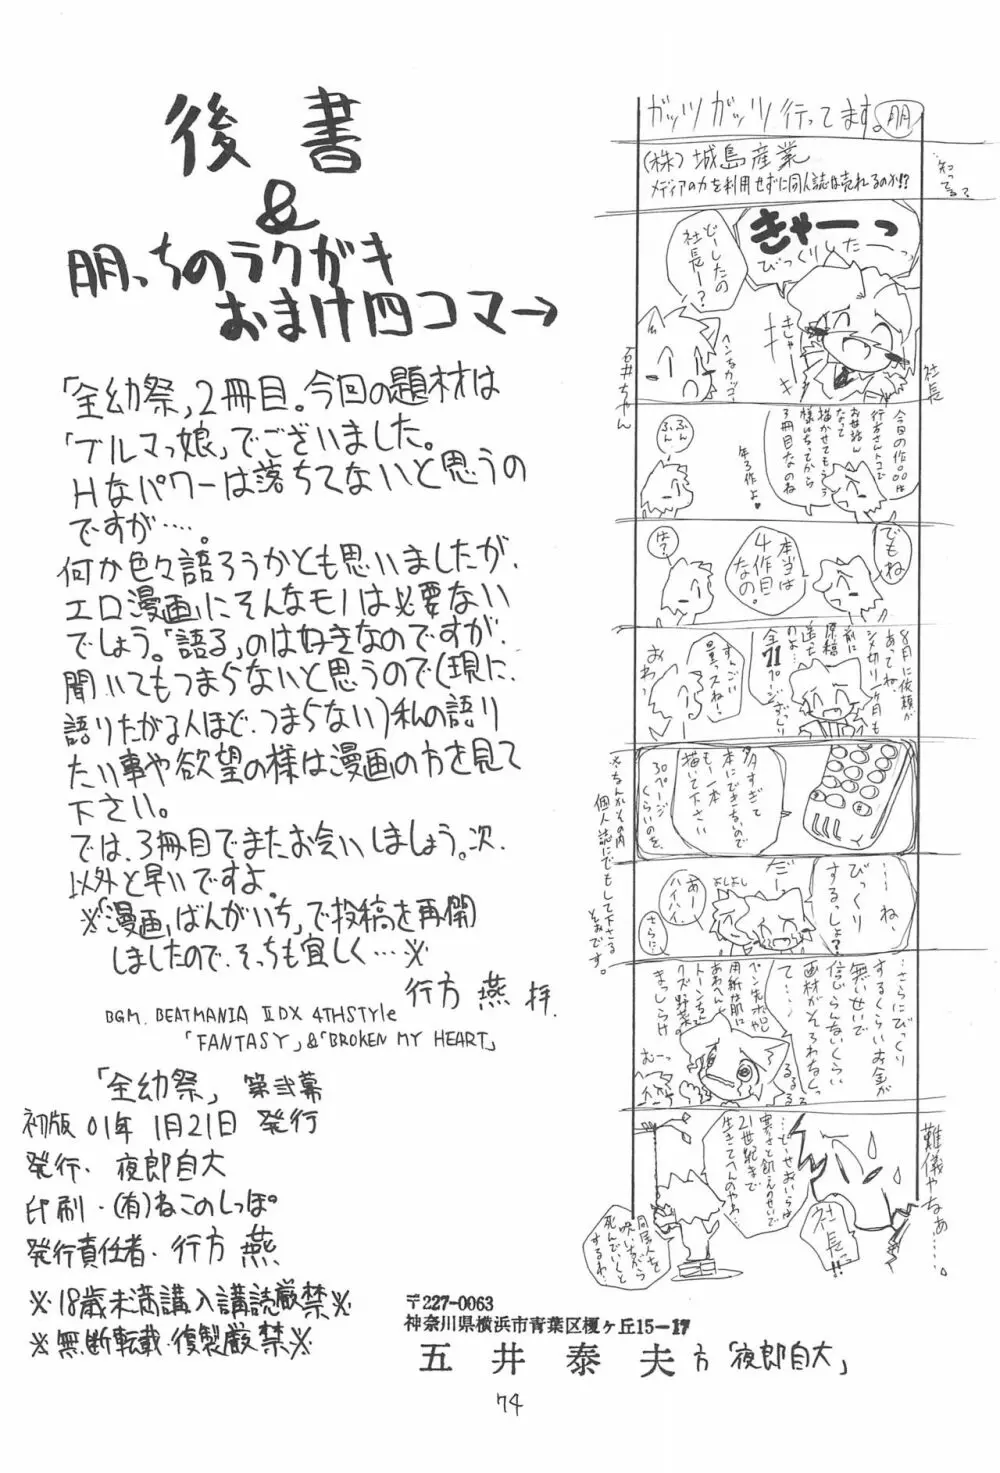 後書
&
朋っちのラクガキ
おまけ四コマ→
「全幼祭」2冊目。今回の題材は
「ブルマっ娘」でございました。
Hなパワーは落ちてないと思うの
ですが…。
何か色々語ろうかとも思いましたが、
エロ漫画にそんなモノは必要ない
でしょう。「語る」のは好きなのですが、
聞いてもつまらないと思うので(現に、
語りたがる人ほど、つまらない)私の語り
たい事や欲望の様は漫画の方を見て
下さい。
では、3冊目でまたお会いしましょう。次、
以外と早いですよ。
※「漫画ばんがいち」で投稿を再開
しましたので、そっちも宜しく…※
行方 燕 拝.
BGM. BEATMANIA ⅡDX 4THStyle
「FANTASY」&「BROKEN MY HEART」
「全幼祭」 第弐幕
初版 01年 1月21日 発行
発行・夜郎自大
印刷・(有)ねこのしっぽ。
発行責任者・行方 燕
※18歳未満購入購読厳禁※
※無断転載・複製厳禁※
ガッツガッツ行ってます。朋
(株)城島産業
メディアの力を利用せずに同人誌は売れるのか!?
知ってる?
きゃーっ
びっくりしたーっ
どーしたの
社長ー?
きしゃーーき
ヘンなカッコ
石井ちゃん
社長
今回の作品は
行方さんトコで
お世話ん
なって
描かせてもらう
様になってから
3冊目なのね
年3作よ♥
ふんふん
でもね
本当は
4作目
なの。
は?
8月に依頼が
あってね、
シメ切り一ヶ月も
前に
原稿
送った
のよ…
全71ページ
すんごい
量っスねー
おわっ
多すぎて
本にできないので
もー一本
描いて下さい
30ページ
くらいのを。
※なんかその内
個人誌にでもして下さる
そおです。
…ね、
びっくり
するっしょ?
だー
よしよし
あー
ハイハイ
さらに、
…さらにびっくり
するくらいお金が
無いせいで
信じらんないくらい
画材がそろわなくっ
て…
るるる
むーっ
難儀やなぁ……
社長っ!!
…どーせおいらは
寒さと飢えのせいで
21世紀まで
生きてへんのやわ…
同居人を
呪いながら
死んでいくと
するわ…
〒227-0063
神奈川県横浜市青葉区榎ヶ丘15-17
五井泰夫方「夜郎自大」
74